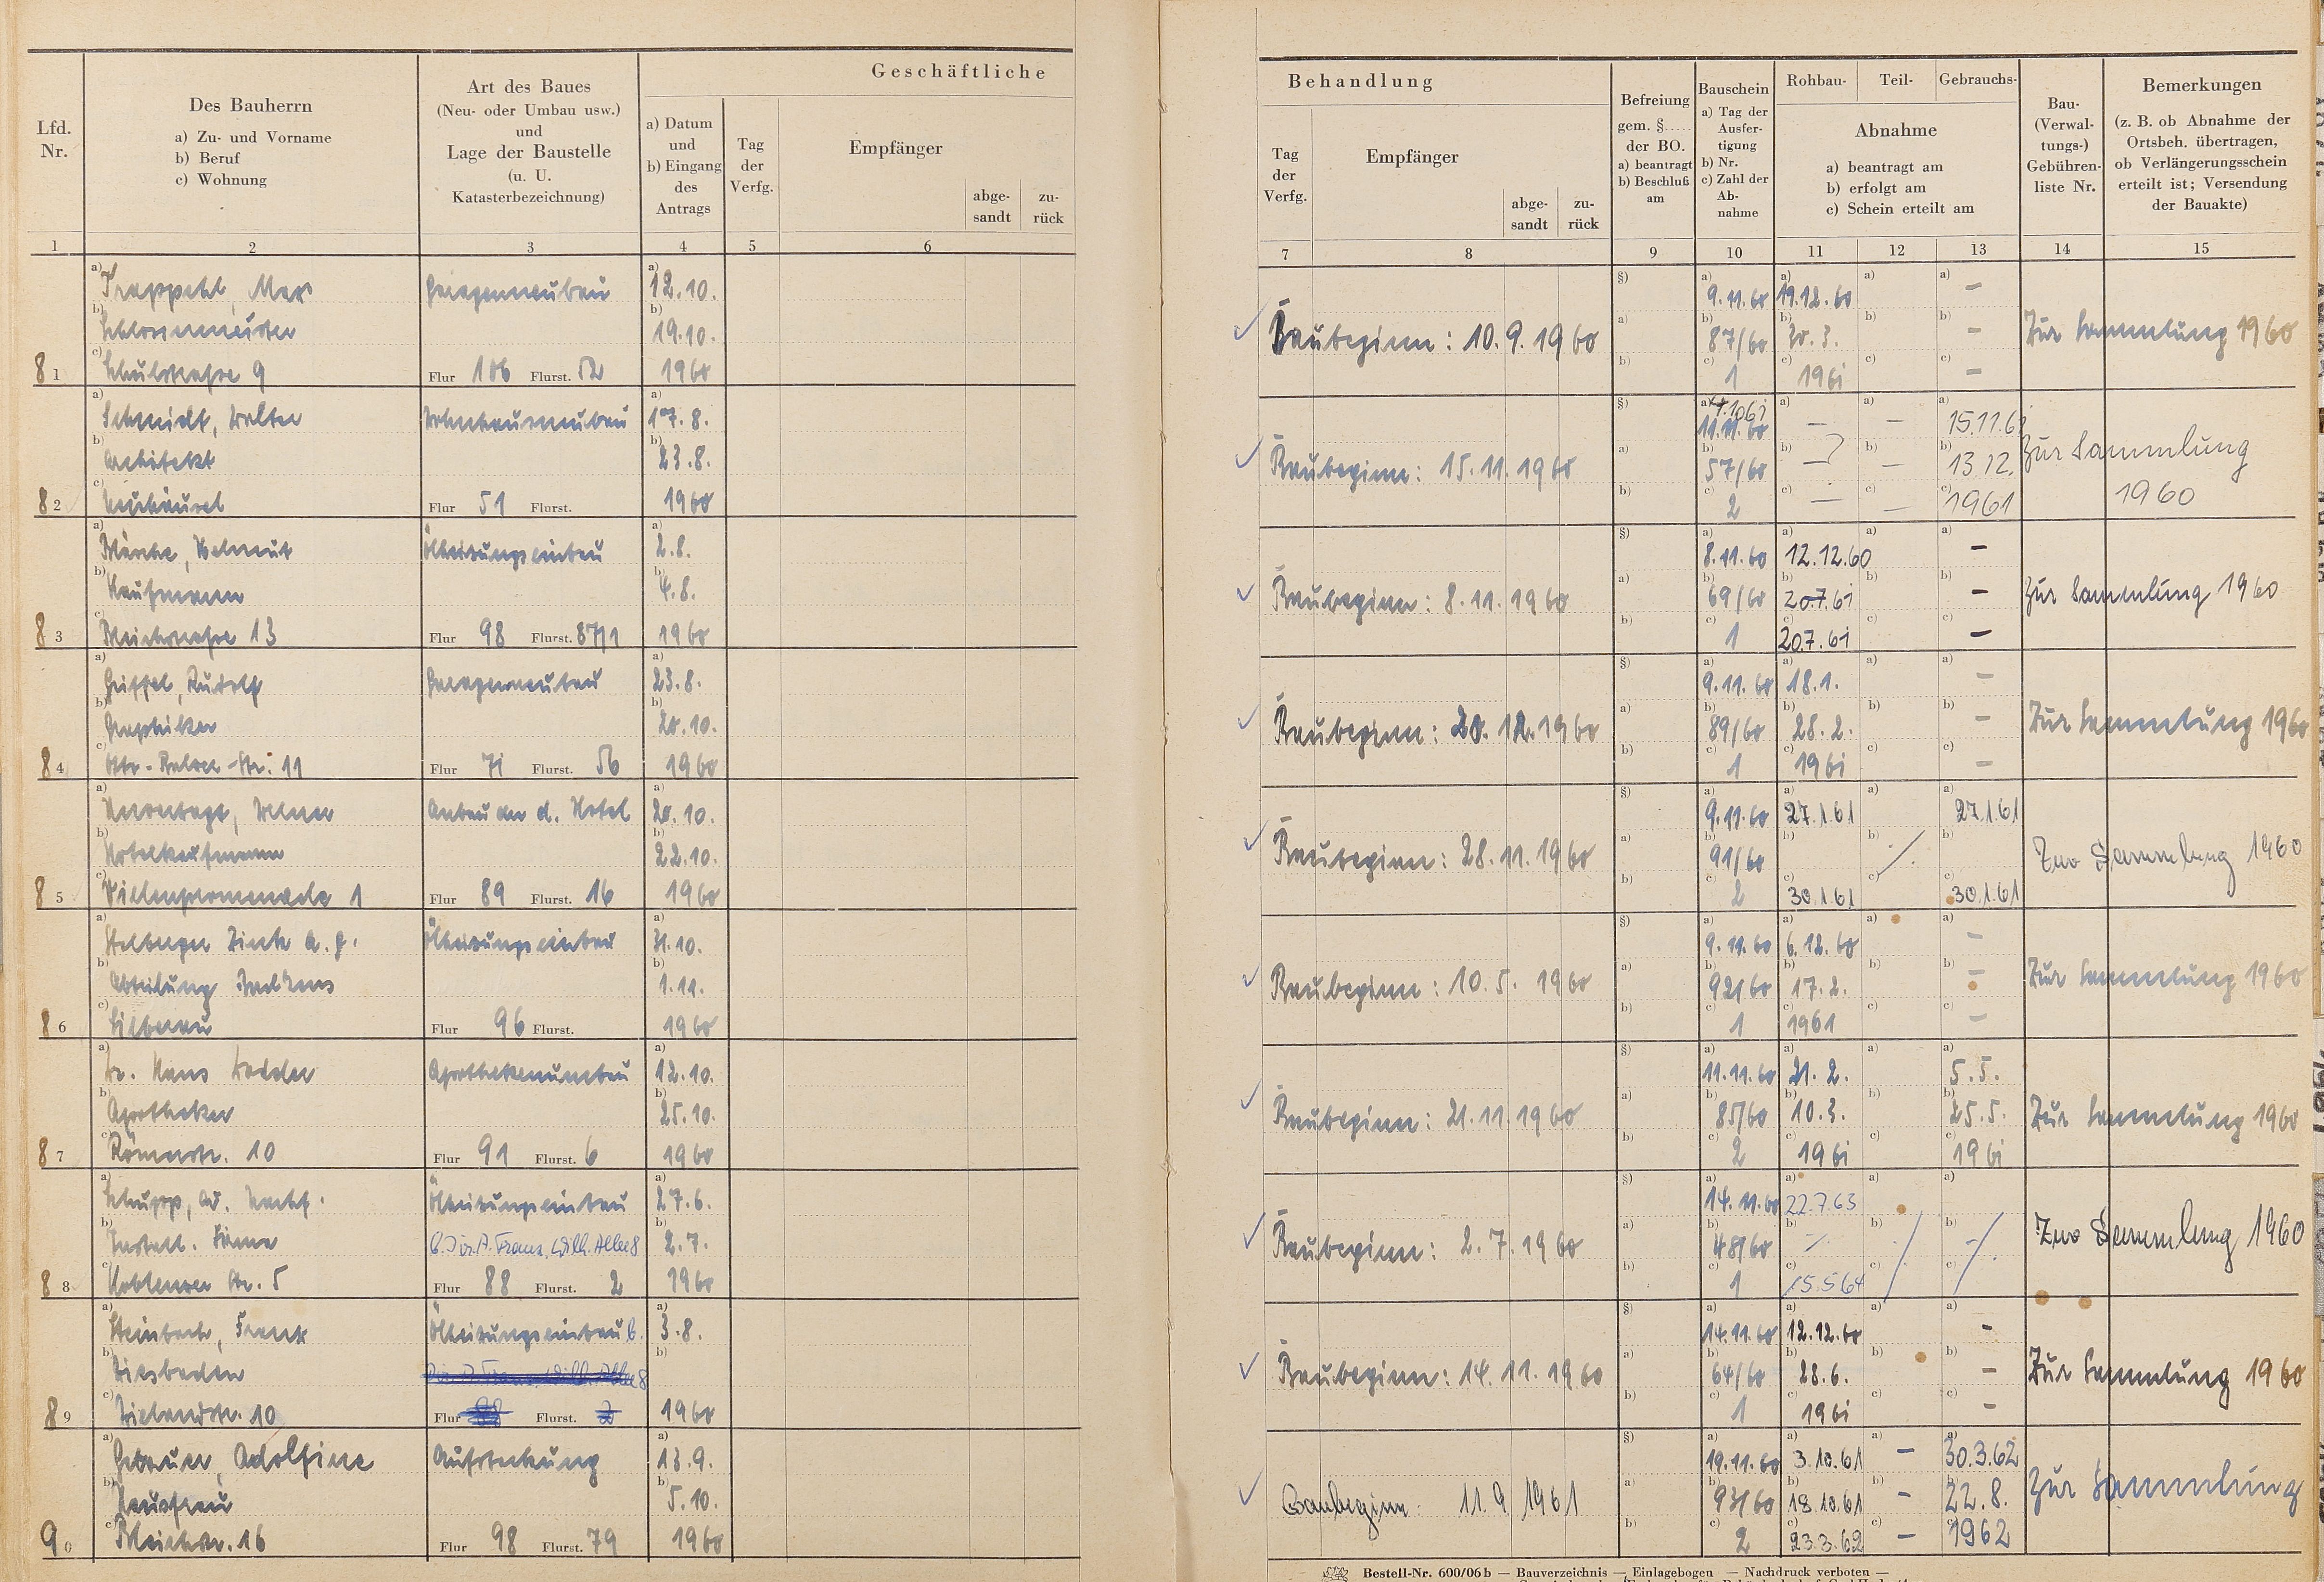 Geschäftliche
Lfd.
Nr.
Des Bauherrn
a) Zu- und Vorname
b) Beruf
c) Wohnung
Art des Baues
(Neu- oder Umbau usw.)
und
Lage der Baustelle
(u. U.
Katasterbezeichnung)
a) Datum
und
b) Eingang
des
Antrags
Tag
der
Verfg.
Empfänger
abge-
sandt
zu-
rück
1 2 3 4 5 6
a) Max Garagenneubau a) 12.10.
b) Schlossermeister b) 19.10.
81 c) Schulstrasse 9 Flur 106 Flurst. 52 1960
a) Schmidt, Walter Wohnhausneubau a) 17.8.
b) Architekt b) 23.8.
82 c) Neuhäusel Flur 51 Flurst. 1960
a) Helmut Ölheizungseinbau a) 2.8.
b) Kaufmann b) 4.8.
83 c) Bleichstrasse 13 Flur 98 Flurst. 87/1 1960
a) Rudolf Garagenneubau a) 23.8.
b) Graphiker b) 20.10.
84 c) 11 Flur 71 Flurst. 56 1960
a) Werner Anbau an d. Hotel a) 20.10.
b) Hotelkaufmann b) 22.10.
85 c) Villenpromenade 1 Flur 89 Flurst. 16 1960
a) Stolberger Zink A.G. Ölheizungseinbau a) 31.10.
b) Abteilung b) 1.11.
86 c) Silberau Flur 96 Flurst. 1960
a) Dr. Hans Apothekenumbau a) 12.10.
b) Apotheker b) 25.10.
87 c) Römerstr. 10 Flur 91 Flurst. 6 1960
a) Schupp, Ad. Nachf. Ölheizungseinbau a) 27.6.
b) Install. Firma Franz, Wilh. Allee 8 b) 2.7.
88 c) Koblenzer Str. 5 Flur 88 Flurst. 2 1960
a) Steinbach, Frank Ölheizungseinbau a) 3.8.
b) Wiesbaden b)
89 c) Wielandstr. 10 Flur Flurst. 1960
a) Gebauer, Adolfine Aufstockung a) 13.9.
b) Hausfrau b) 5.10.
90 c) Bleichstr. 16 Flur 98 Flurst. 79 1960
Behandlung
Tag
der
Verfg.
Empfänger
abge-
sandt
zu-
rück
Befreiung
gem. §.....
der BO.
a) beantragt
b) Beschluß
am
Bauschein
a) Tag der
Ausfer-
tigung
b) Nr.
c) Zahl der
Ab-
nahme
Rohbau- Teil- Gebrauchs-
Abnahme
a) beantragt am
b) erfolgt am
c) Schein erteilt am
Bau-
(Verwal-
tungs-)
Gebühren-
liste Nr.
Bemerkungen
(z. B. ob Abnahme der
Ortsbeh. übertragen,
ob Verlängerungsschein
erteilt ist; Versendung
der Bauakte)
7 8 9 10 11 12 13 14 15
§) a) 9.11.60 a) 19.12.60 a) a) –
Baubeginn: 10.9.1960 a) b) 87/60 b) 30.3. b) b) – Zur Sammlung 1960
b) c) 1 c) 1961 c) c) –
§) a) 11.11.60 a) – a) – a) 15.11.61
Baubeginn: 15.11.1960 a) b) 57/60 b) – b) – b) 13.12. Zur Sammlung
b) c) 2 c) – c) – c) 1961 1960
§) a) 8.11.60 a) 12.12.60 a) a) –
Baubeginn: 8.11.1960 a) b) 69/60 b) 20.7.61 b) b) – Zur Sammlung 1960
b) c) 1 c) 20.7.61 c) c) –
§) a) 9.11.60 a) 18.1. a) a) –
Baubeginn: 20.12.1960 a) b) 89/60 b) 28.2. b) b) – Zur Sammlung 1960
b) c) 1 c) 1961 c) c) –
§) a) 9.11.60 a) 27.1.61 a) a) 27.1.61
Baubeginn: 28.11.1960 a) b) 91/60 b) b) b) Zur Sammlung 1960
b) c) 2 c) 30.1.61 c) c) 30.1.61
§) a) 9.11.60 a) 6.12.60 a) a) –
Baubeginn: 10.5. 1960 a) b) 92/60 b) 17.2. b) b) – Zur Sammlung 1960
b) c) 1 c) 1961 c) c) –
§) a) 11.11.60 a) 21.2. a) a) 5.5.
Baubeginn: 21.11.1960 a) b) 85/60 b) 10.3. b) b) 25.5. Zur Sammlung 1960
b) c) 2 c) 1961 c) c) 1961
§) a) 14.11.60 a) 22.7.63 a) a)
Baubeginn: 2.7.1960 a) b) 48/60 b) b) b) Zur Sammlung 1960
b) c) 1 c) 15.5.64 c) c)
§) a) 14.11.60 a) 12.12.60 a) a) –
Baubeginn: 14.11.1960 a) b) 64/60 b) 28.6. b) b) – Zur Sammlung 1960
b) c) 1 c) 1961 c) c) –
§) a) 19.11.60 a) 3.10.61 a) – a) 30.3.62
Baubeginn: 11.9 1961 a) b) 93/60 b) 18.10.61 b) – b) 22.8. Zur Sammlung
b) c) 2 c) 23.3.62 c) – c) 1962
Bestell-Nr. 600/06 b — Bauverzeichnis — Einlagebogen — Nachdruck verboten —